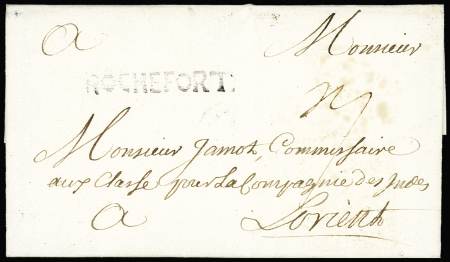 A Monsieur
ROCHEFORT.
Monsieur Jamot, Commissaire
aux Classe pour La Compagnie des Indes
A Lorient